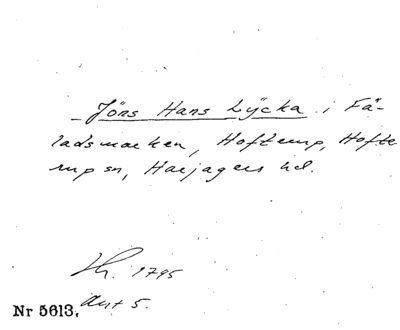 - Jöns Hans Lÿcka i Fä-
ladsmarken, Hofterup, Hofte-
rup sn, Harjagers hd.
1795
Ant 5.
Nr 5613.